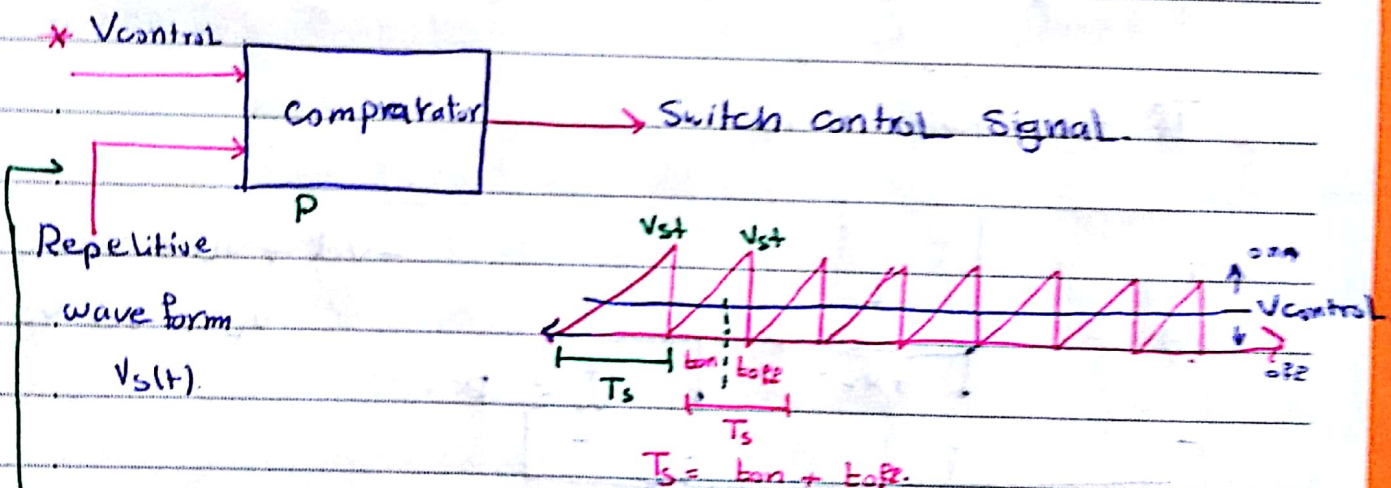 * Vcontrol
Comprarator
Switch control Signal.
P
Repelitive
wave form
Vs(t).
Vst
Vst
Vcontrol
Ts
ton
toff
Ts
Ts = ton + toff.